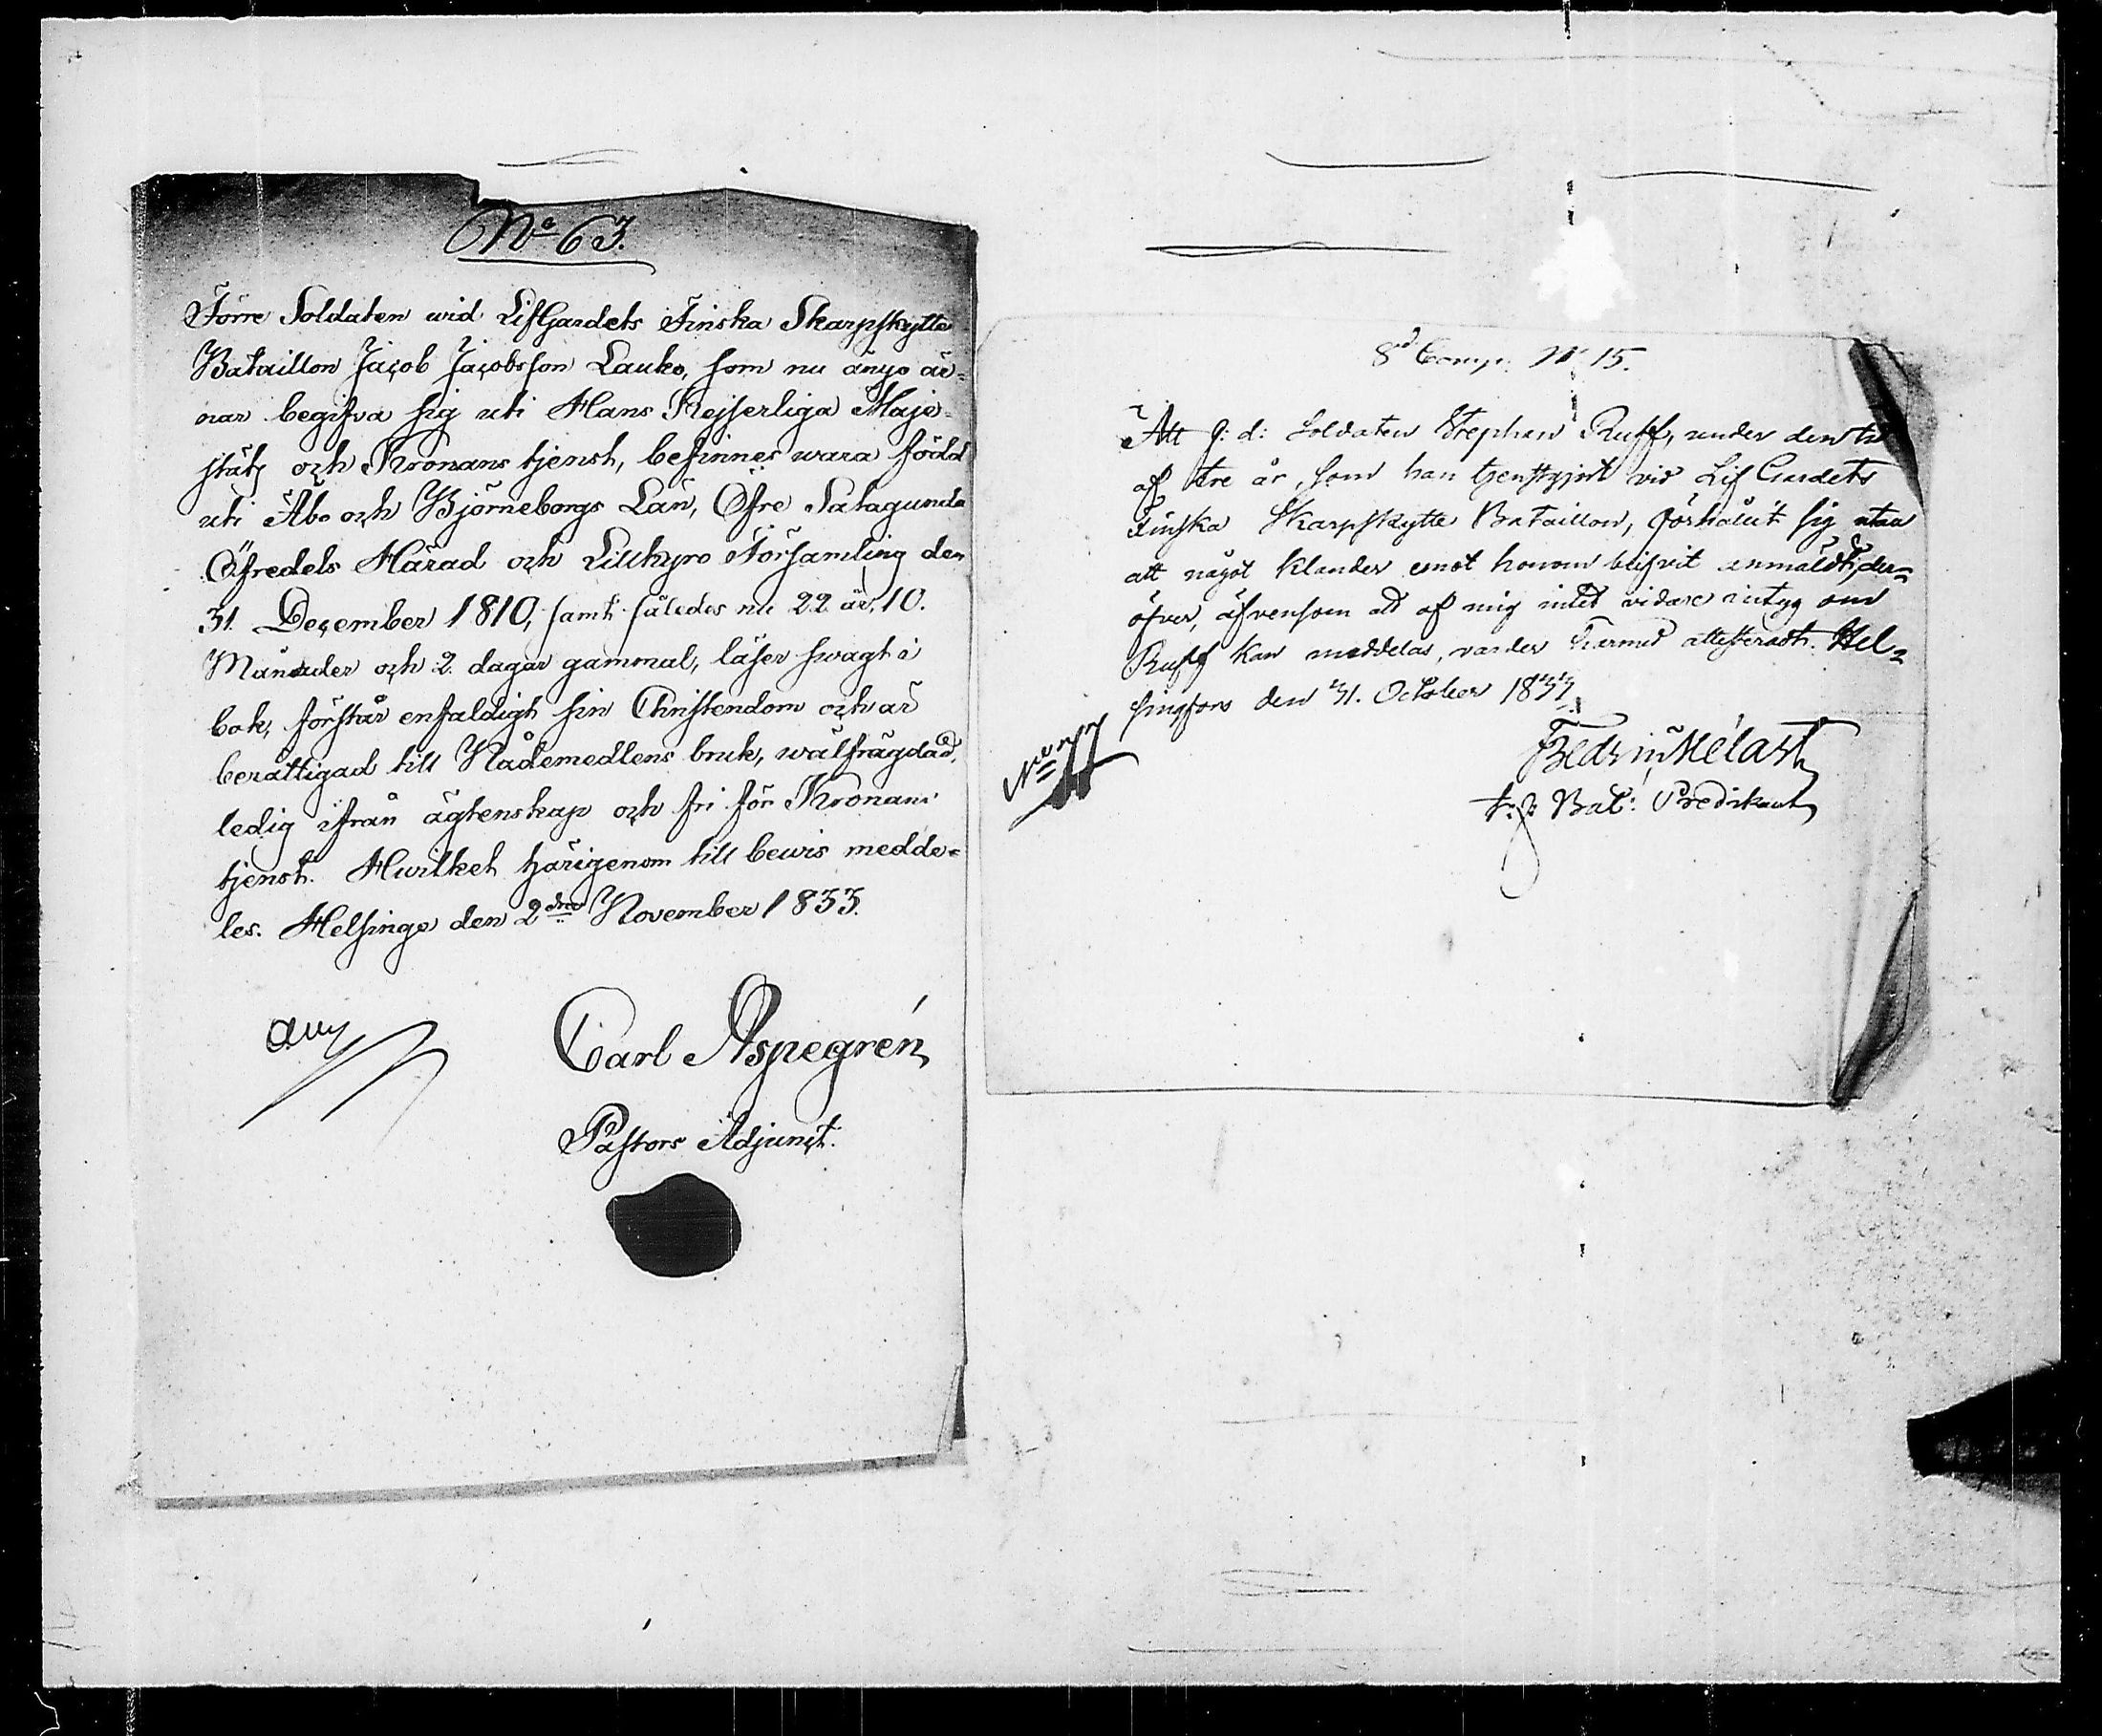 No 63.
Förre Soldaten wid LifGardets Finska Skarpskytte
Bataillon Jacob Jacobsson Lauko, som nu ånyo är-
nar begifva sig uti Hans Kejserliga Maje-
stäts och Kronans tjenst, befinnes wara född
uti Åbo och Björneborgs Län, Öfre Satagunda
Öfredels Härad och Lillkyro Församling den
31. December 1810, samt således nu 22 år, 10.
Månader och 2. dagar gammal, läser swagt i
bok, förstår enfaldigt sin Christendom och är
berättigad till Nådemedlens bruk, wälfrägdad,
ledig ifrån ägtenskap och fri för Kronans
tjenst. Hwilket härigenom till bewis medde-
les. Helsinge den 2dra November 1833.
Carl Aspegrén
Pastors Adjunct.
8d Comp. No 15.
Att f: d: Soldaten Stephan Ruff, under den tid
af tre år, som han tjenstgjort vid Lif Gardets
Finska Skarpskytte Bataillon, förhållit sig utan
att något klander emot honom blifvit anmäldt, der-
öfver, äfvensom att af mig intet vidare intyg om
Ruff kan meddelas, varder härmed attesteradt. Hel-
singfors den 31. October 1833.
t. f. Bat: Predikant